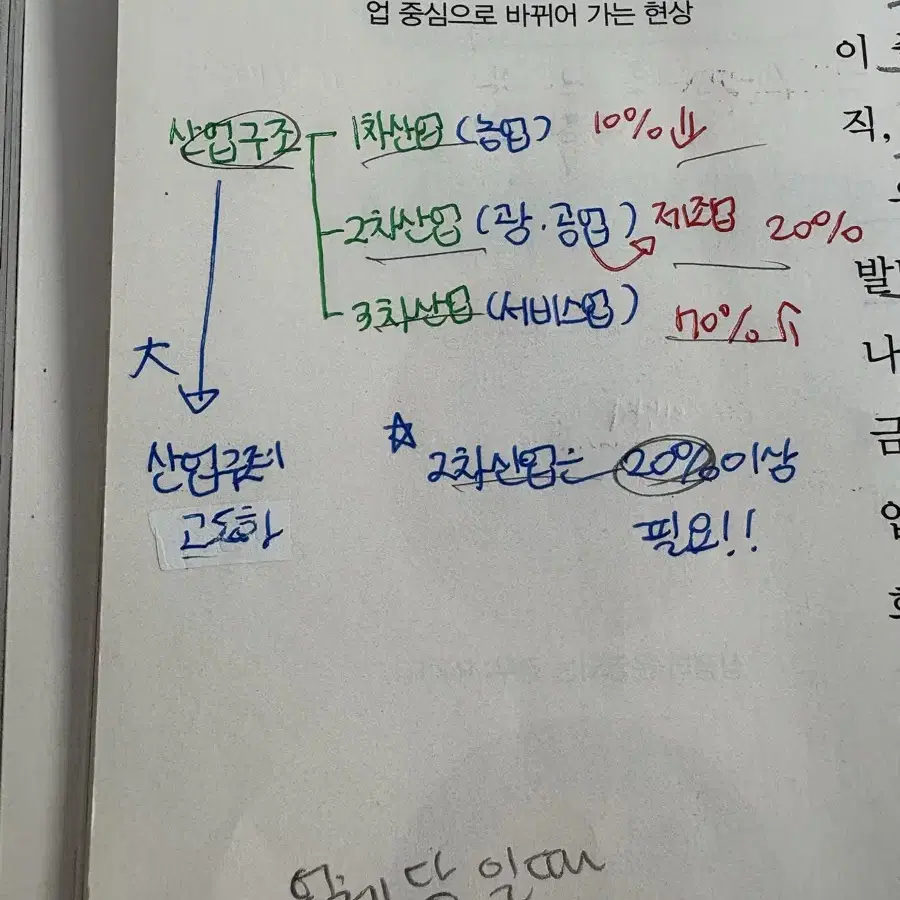 업 중심으로 바뀌어 가는 현상
산업구조 1차산업 (농업) 10%↓
2차산업 (광·공업) 제조업 20%
3차산업 (서비스업) 70%↑
大
산업구조의
고도화
☆ 2차산업은 20% 이상
필요!!
이
직,
발
나
금